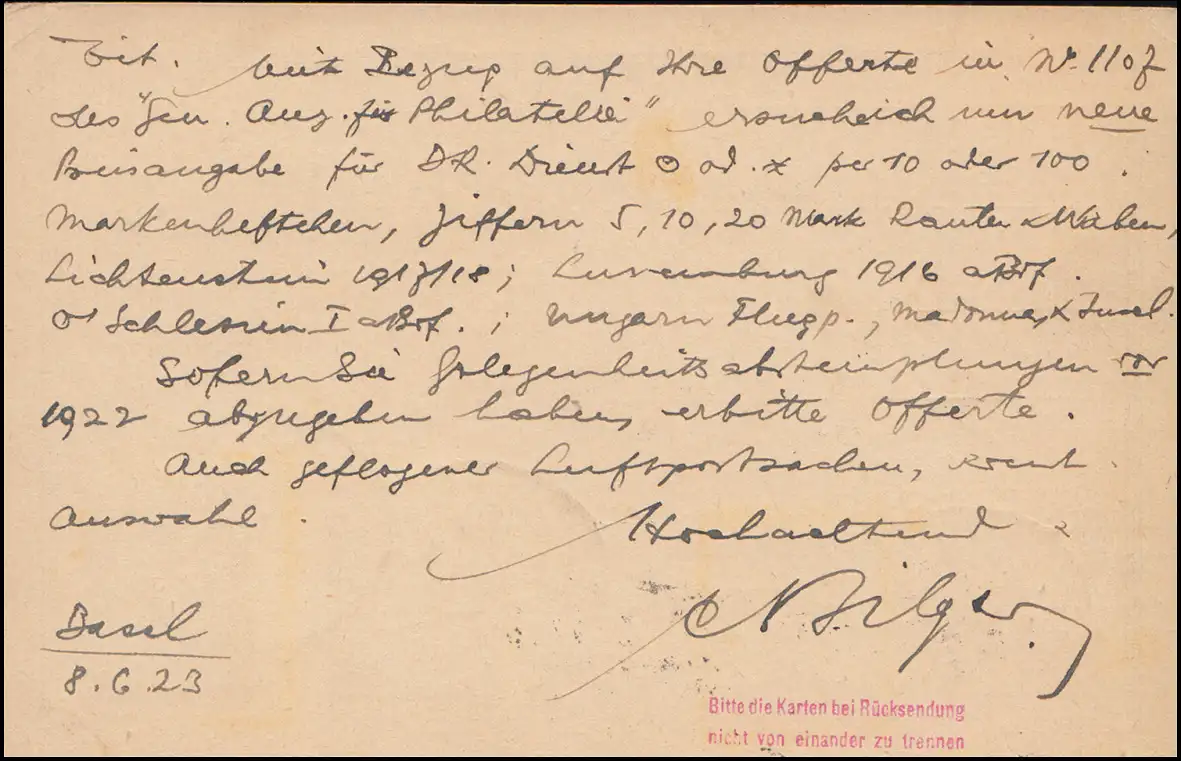 Tit. Mit Bezug auf Ihre Offerte in No. 1107
des "Gen. Anz. für Philatelie" ersuche ich um neue
Preisangabe für D.R. Dienst ⊙ od. x per 10 oder 100.
Markenheftchen, Ziffern 5, 10, 20 Mark Rauten & Waben,
Lichtenstein 1917/18; Luxemburg 1916 aBrf.
O'Schlesien I aBrf.; Ungarn Flugp., Madonna, x Insel.
Sofern Sie Gelegenheitsabstemplungen vor
1922 abzugeben haben, erbitte Offerte.
Auch geflogener Luftpostsachen, event.
Auswahl.
Hochachtend
Bilger
Basel
8.6.23
Bitte die Karten bei Rücksendung
nicht von einander zu trennen